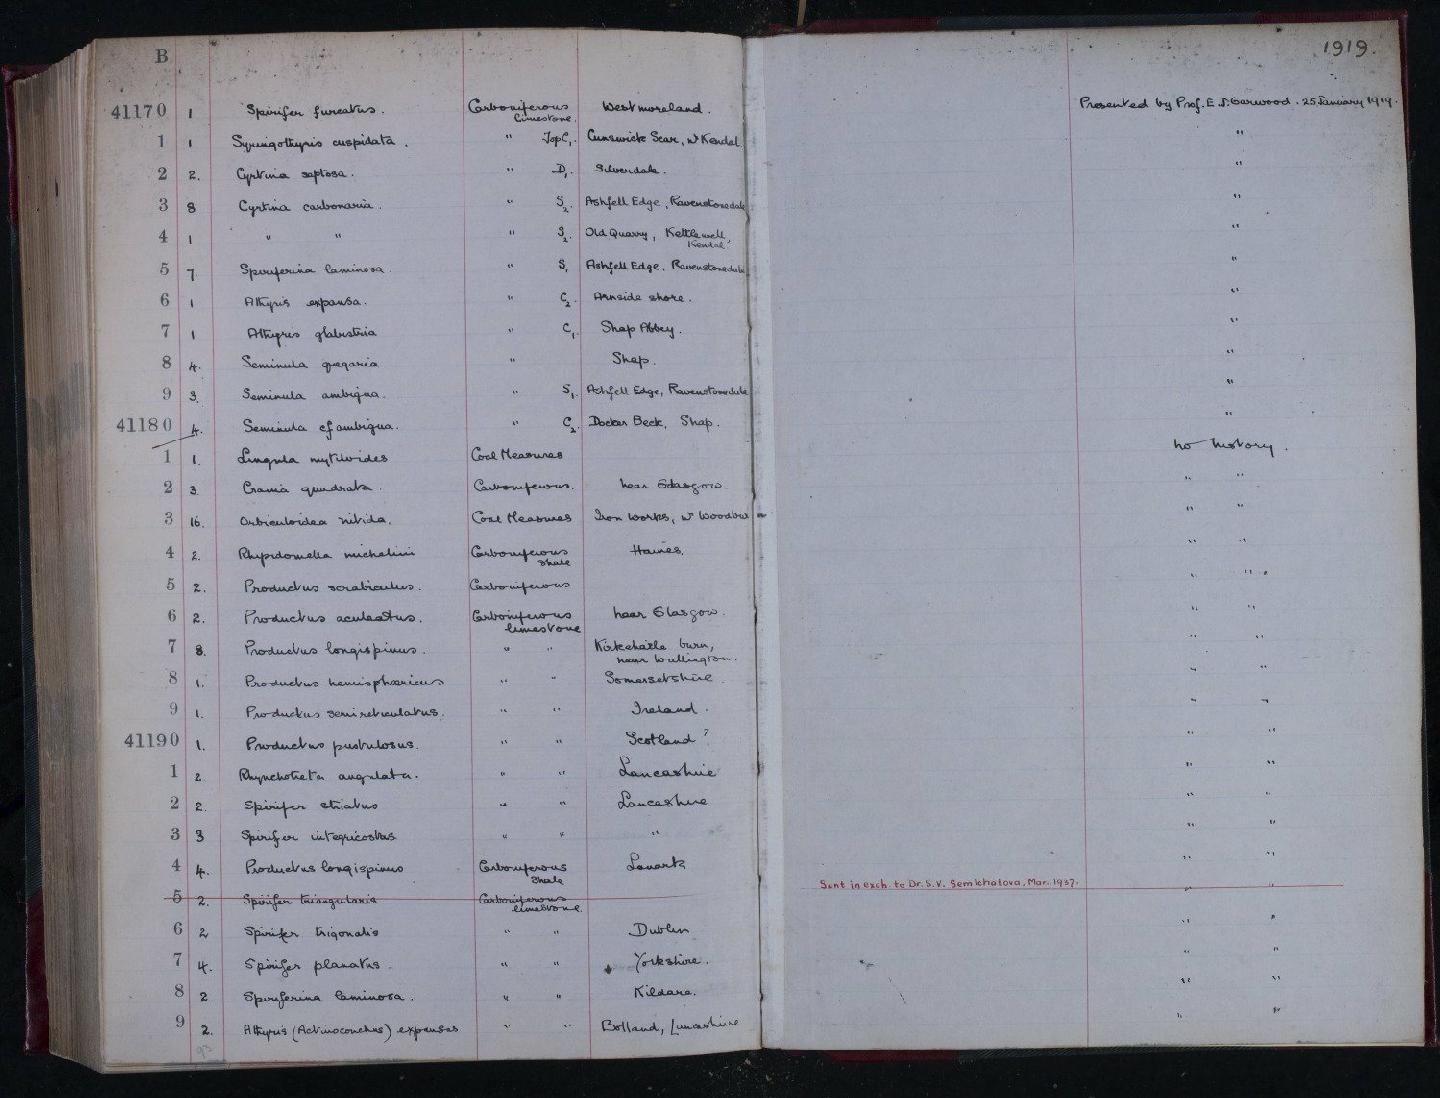 B
1919.
41170 1 Spirifer furcatus. Carboniferous limestone. Westmoreland. Presented by Prof. E. J. Garwood. 25 January 1919.
1 1 Syringothyris cuspidata. " Top C1. Cunswick Scar, nr Kendal "
2 2. Cyrtina septosa. " D1. Silverdale. "
3 8 Cyrtina carbonaria. " S2. Ashfell Edge, Ravenstonedale "
4 1 " " " S2. Old Quarry, Kettlewell, Kendal. "
5 7 Spiriferina laminosa. " S1 Ashfell Edge. Ravenstonedale "
6 1 Athyris expansa. " C2. Arnside shore. "
7 1 Athyris glabistria " C1. Shap Abbey. "
8 4. Seminula gregaria " Shap. "
9 3. Seminula ambigua. " S1. Ashfell Edge, Ravenstonedale "
41180 4. Seminula cf ambigua. " C2. Docker Beck, Shap. "
1 1. Lingula mytiloides Coal Measures no history.
2 3. Crania quadrata. Carboniferous. near Glasgow. " "
3 16. Orbiculoidea nitida. Coal Measures Iron Works, nr " "
4 2. Rhipidomella michelini Carboniferous shale " "
5 2. Productus scrabiculus. Carboniferous " "
6 2. Productus aculeatus. Carboniferous limestone near Glasgow. " "
7 8. Productus longispinus. " " burn, near " "
8 1. Productus hemisphaericus " " Somersetshire. " "
9 1. Productus semireticulatus. " " Ireland. " "
41190 1. Productus pustulosus. " " Scotland? " "
1 2. angulata. " " Lancashire " "
2 2. Spirifer striatus " " Lancashire " "
3 3 Spirifer integricostas " " " " "
4 4. Productus longispinus Carboniferous Shale Lanark " "
Sent in exch. to Dr. S. V. Semichatova, Mar. 1937.
5 2. Spirifer triangularis Carboniferous limestone. " "
6 2 Spirifer trigonalis " " Dublin " "
7 4. Spirifer planatus. " " Yorkshire. " "
8 2 Spiriferina laminosa. " " Kildare. " "
9 2. Athyris (Actinoconchus) expansas " " Bolland, Lancashire " "
93